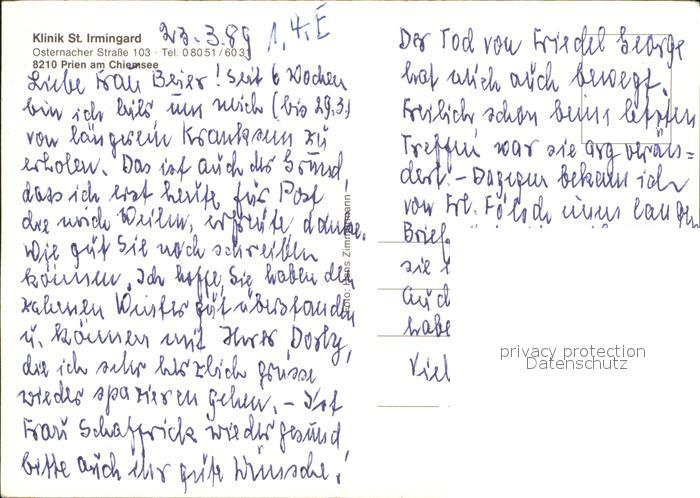 Klinik St. Irmingard
Osternacher Straße 103 · Tel. 0 80 51 / 60 31
8210 Prien am Chiemsee
23.3.89
1.4. E
Liebe Frau Beier! Seit 6 Wochen
bin ich hier, um mich (bis 29.3.)
von längerem Kranksein zu
erholen. Das ist auch der Grund,
dass ich erst heute für Post
die mich Weihn. erfreute danke.
Wie gut Sie noch schreiben
können. Ich hoffe, Sie haben den
zahmen Winter gut überstanden
u. können mit Ihrer Dorly,
die ich sehr herzlich grüsse
wieder spazieren gehen. – Ist
Frau Schaffrick wieder gesund,
bitte auch ihr gute Wünsche!
Foto: Hans Zimmermann
Der Tod von Friedel George
hat mich auch bewegt.
Freilich schon beim letzten
Treffen war sie arg verän=
dert. – Dagegen bekam ich
von Frl. Fölsch einen langen
Brief
sie
Auch
habe
Viel
privacy protection
Datenschutz